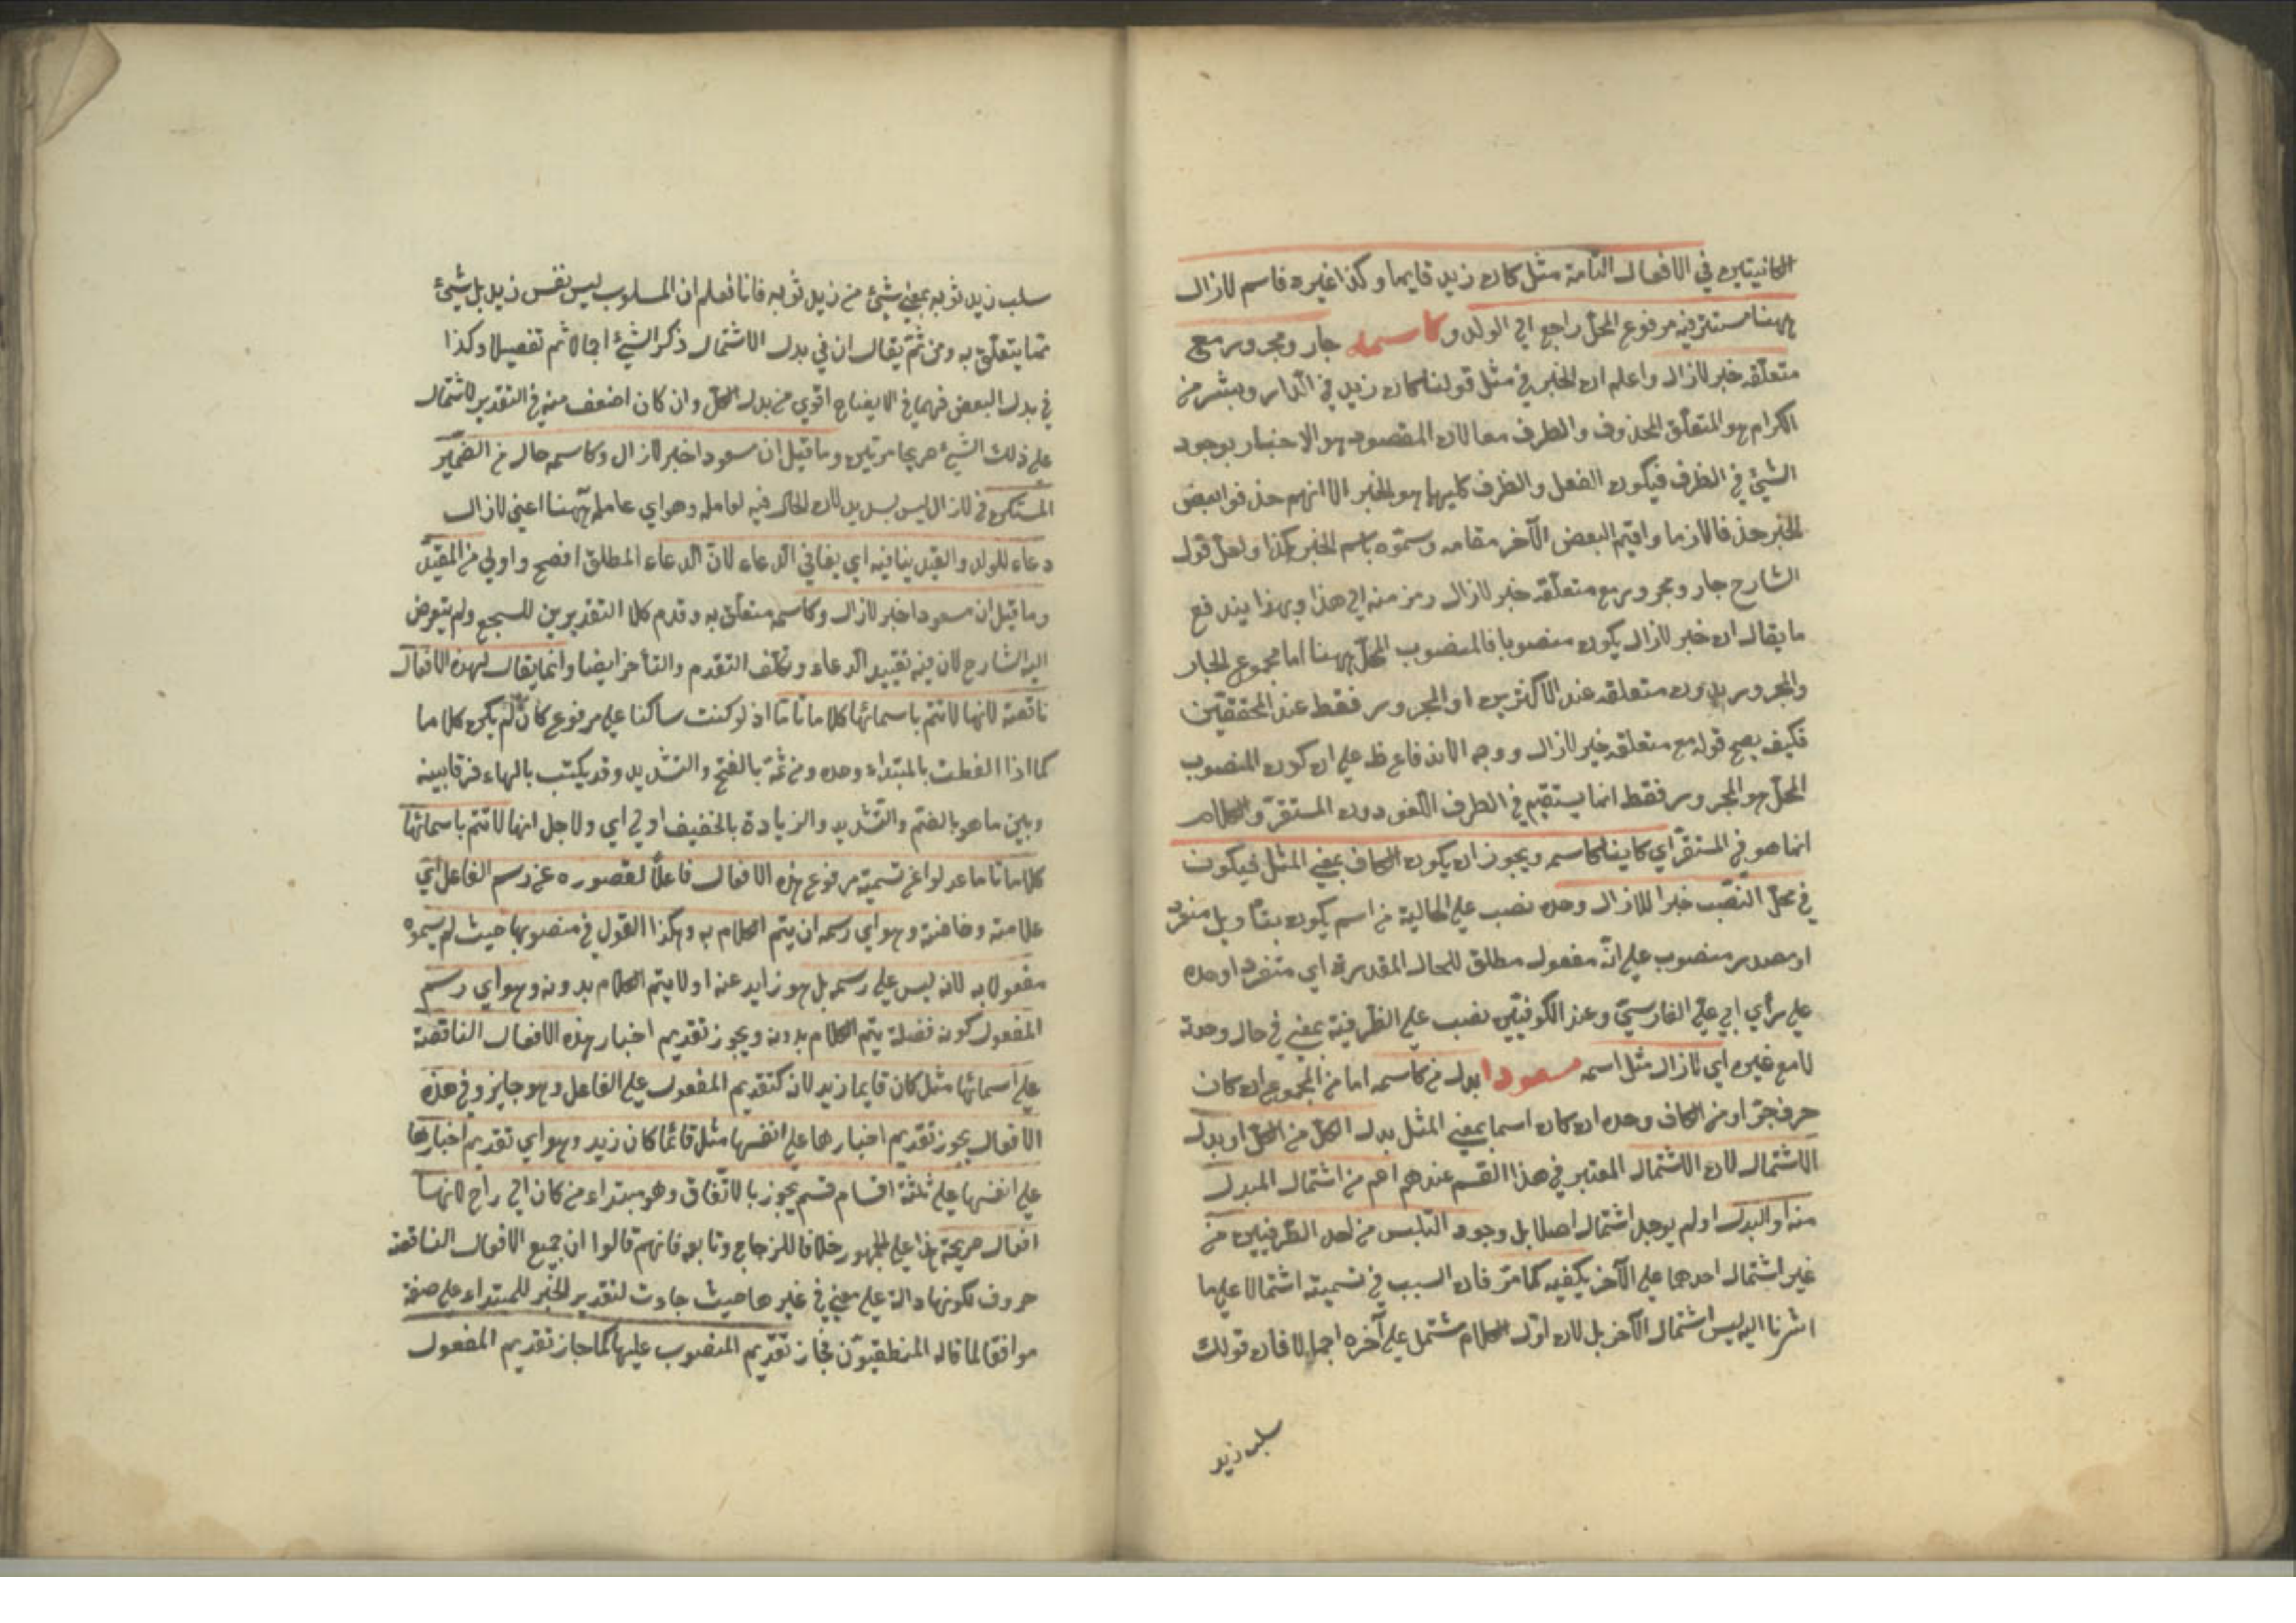 الكائنين في الافعال التامة مثل كان زيد قايما وكذا غيره فاسم لازال
ههنا مستتر فيه مرفوع المحل راجع الى الولد و كاسمه جار ومجرور مع
متعلقه خبر لازال واعلم ان الخبر في مثل قولنا كان زيد في الدار وبشر من
الكرام هو المتعلق المحذوف والظرف معا لان المقصود هو الاخبار بوجود
الشيئ في الظرف فيكون الفعل والظرف كليهما هو الخبر الا انهم حذفوا بعض
الخبر حذفا لازما واقيم البعض الآخر مقامه وسموه باسم الخبر كذا ولعل قول
الشارح جار ومجرور مع متعلقه خبر لازال رمز منه الى هذا وبهذا يندفع
ما يقال ان خبر لازال يكون منصوبا فالمنصوب المحل ههنا اما مجموع الجار
والمجرور بدون متعلقه عند الاكثرين او المجرور فقط عند المحققين
فكيف يصح قوله مع متعلقه خبر لازال ووجه الاندفاع ظ على ان كون المنصوب
المحل هو المجرور فقط انما يستقيم في الظرف اللغو دون المستقر والكلام
انما هو في المستقر اي كاينا كاسمه ويجوز ان يكون الكاف بمعنى المثل فيكون
في محل النصب خبرا للازال وحده نصب على الحالية من اسم يكون بتاويل منفرد
او مصدر منصوب على انه مفعول مطلق للحال المقدرة اي متفردا وحده
على رأي ابي علي الفارسي وعند الكوفيين نصب على الظرفية بمعنى في حال وحدة
لا مع غيره اي لازال مثل اسمه مسعودا بدل من كاسمه اما من المجموع ان كان
حرف جر او من الكاف وحده ان كان اسما بمعنى المثل بدل الكل من الكل او بدل
الاشتمال لان الاشتمال المعتبر في هذا القسم عندهم اعم من اشتمال المبدل
منه او البدل او لم يوجد اشتمال اصلا بل وجود التلبس من احد الطرفين من
غير اشتمال احدهما على الآخر يكفيه كما مر فان السبب في تسميته اشتمالا على ما
اشرنا اليه ليس اشتمال الآخر بل لان اول الكلام مشتمل على آخره اجمالا فان قولك
سلب زيد
سلب زيد ثوبه بمعنى شيئ من زيد ثوبه فانا نعلم ان المسلوب ليس نفس زيد بل شيئ
مما يتعلق به ومن ثم يقال ان في بدل الاشتمال ذكر الشيئ اجمالا ثم تفصيلا وكذا
في بدل البعض فهما في الايضاح اقوى من بدل الكل وان كان اضعف منه في التقدير لاشتمال
على ذلك الشيئ صريحا مرتين وما قيل ان مسعودا خبر لازال وكاسمه حال من الضمير
المستكن في لازال ليس بسديد لان الحال قيد لعامله وهو اي عامله ههنا اعني لازال
دعاء للولد والقيد ينافيه اي ينافي الدعاء لان الدعاء المطلق افصح واولى من المقيد
وما قيل ان مسعودا خبر لازال وكاسمه متعلق به وقدم كلا التقديرين للسجع ولم يتعرض
اليه الشارح لان فيه تقييد الدعاء وتكلف التقدم والتأخر ايضا وانما يقال لهذه الافعال
ناقصة لانها لا تتم باسمائها كلاما تاما اذ لو كنت ساكنا على مرفوع كان لم يكن كلاما
كما اذا الفظت بالمبتداء وحده ومن ثمة بالفتح والتشديد وقد يكتب بالهاء فرقا بينه
وبين ما هو بالضم والتشديد والزيادة بالخفيف اولى اي ولاجل انها لا تتم باسمائها
كلاما تاما عدلوا عن تسمية مرفوع هذه الافعال فاعلا لقصوره عن رسم الفاعل اي
علامته وخاصته وهو اي رسمه ان يتم الكلام به وهكذا القول في منصوبها حيث لم يسموه
مفعولا به لانه ليس على رسمه بل هو زايد عنه اولا يتم الكلام بدونه وهو اي رسم
المفعول كونه فضلة يتم الكلام بدونه ويجوز تقديم اخبار هذه الافعال الناقصة
على اسمائها مثل كان قايما زيد لانه كتقديم المفعول على الفاعل وهو جايز وفي هذه
الافعال يجوز تقديم اخبارها على انفسها مثل قائما كان زيد وهو اي تقديم اخبارها
على انفسها على ثلثة اقسام قسم يجوز بالاتفاق وهو مبتداء من كان الى راح لانها
افعال صريحة هذا على الجمهور خلافا للزجاج وتابعه فانهم قالوا ان جميع الافعال الناقصة
حروف لكونها دالة على معنى في غيرها حيث جاءت لتقدير الخبر للمبتداء على صفة
موافقا لما قاله المنطقيون فجاز تقديم المنصوب عليها كما جاز تقديم المفعول